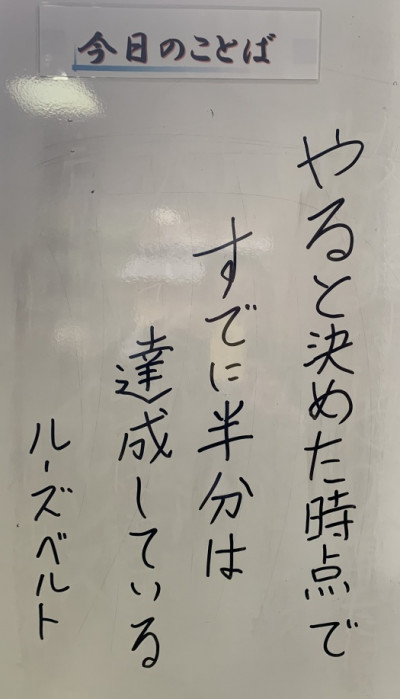 今日のことば
やると決めた時点で
すでに半分は
達成している
ルーズベルト